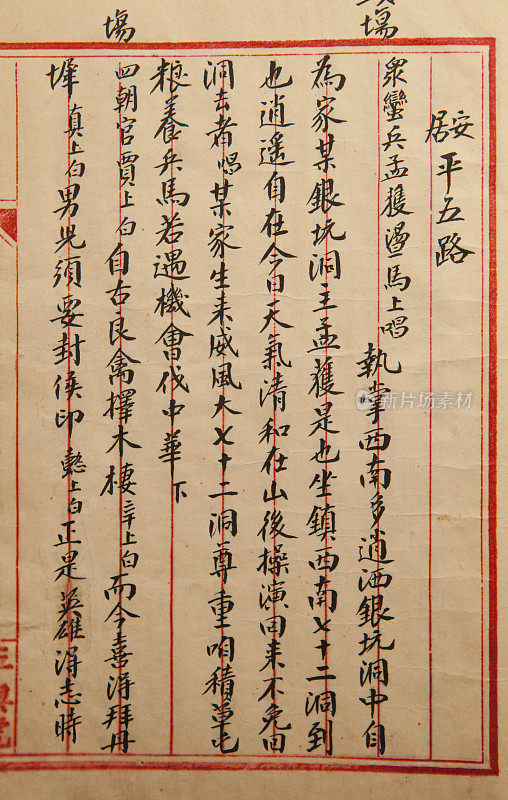 安居平五路
衆蠻兵孟獲盪馬上唱 執掌西南多逍洒銀坑洞中自
為家某銀坑洞主孟獲是也坐鎮西南七十二洞到
也逍遥自在今日天氣清和在山後操演回来不免回
洞去者唱某家生来威風大七十二洞尊重咱積草屯
粮養兵馬若遇機會伐中華下
場 四朝官賈上白自古良禽擇木棲辛上白而今喜得拜丹
墀真上白男児須要封侯印懿上白正是英雄得志時
場
iStock